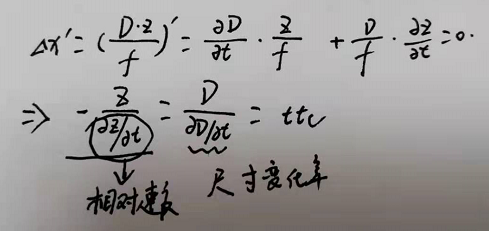 Δx' = (D·z/f)' = ∂D/∂t · z/f + D/f · ∂z/∂t = 0.
⇒ - z/(∂z/∂t) = D/(∂D/∂t) = ttc
相对速度 尺寸变化率